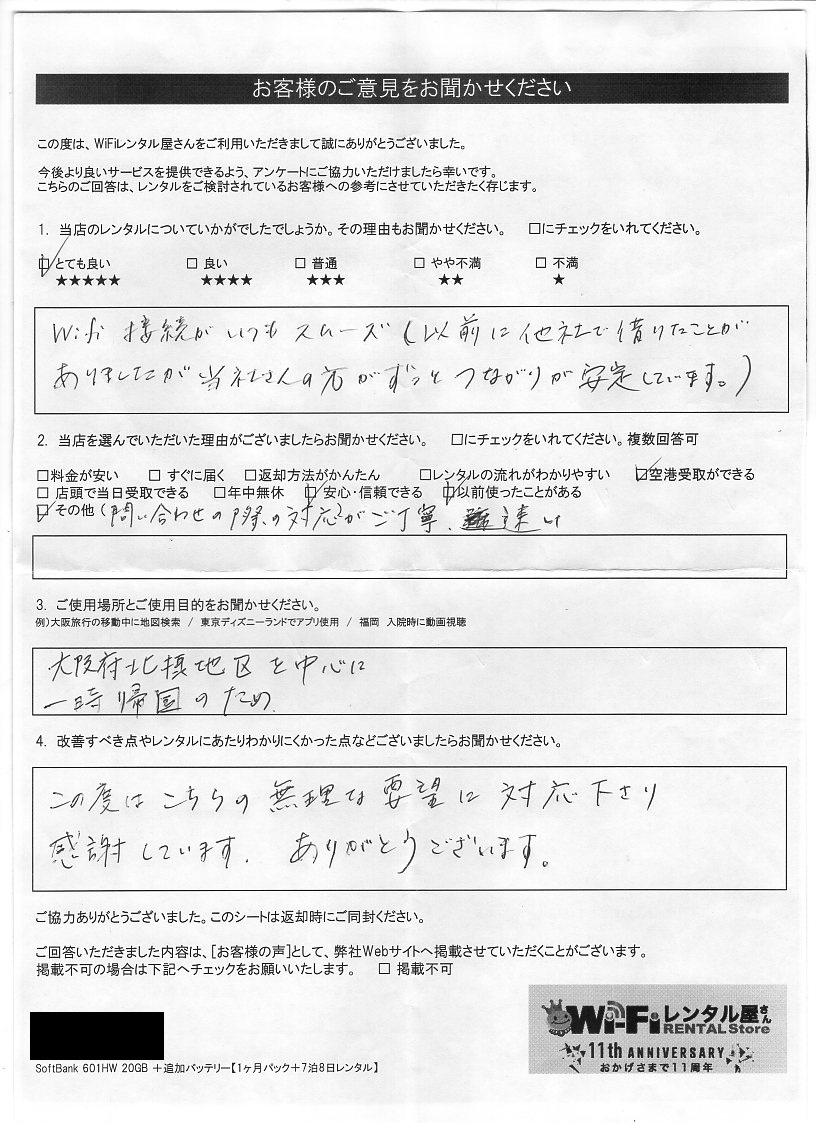 お客様のご意見をお聞かせください
この度は、WiFiレンタル屋さんをご利用いただきまして誠にありがとうございました。
今後より良いサービスを提供できるよう、アンケートにご協力いただけましたら幸いです。
こちらのご回答は、レンタルをご検討されているお客様への参考にさせていただきたく存じます。
1. 当店のレンタルについていかがでしたでしょうか。その理由もお聞かせください。 □にチェックをいれてください。
□ とても良い □ 良い □ 普通 □ やや不満 □ 不満
★★★★★ ★★★★ ★★★ ★★ ★
Wifi 接続がいつもスムーズ(以前に他社で借りたことが
ありましたが当社さんの方がずっとつながりが安定しています。)
2. 当店を選んでいただいた理由がございましたらお聞かせください。 □にチェックをいれてください。複数回答可
□料金が安い □ すぐに届く □返却方法がかんたん □レンタルの流れがわかりやすい □空港受取ができる
□ 店頭で当日受取できる □年中無休 □ 安心・信頼できる □以前使ったことがある
□ その他 ( 問い合わせの際の対応がご丁寧、速い
3. ご使用場所とご使用目的をお聞かせください。
例)大阪旅行の移動中に地図検索 / 東京ディズニーランドでアプリ使用 / 福岡 入院時に動画視聴
大阪府北摂地区を中心に
一時帰国のため
4. 改善すべき点やレンタルにあたりわかりにくかった点などございましたらお聞かせください。
この度はこちらの無理な要望に対応下さり
感謝しています. ありがとうございます。
ご協力ありがとうございました。このシートは返却時にご同封ください。
ご回答いただきました内容は、[お客様の声]として、弊社Webサイトへ掲載させていただくことがございます。
掲載不可の場合は下記へチェックをお願いいたします。 □ 掲載不可
Wi-Fiレンタル屋さん
RENTAL Store
11th ANNIVERSARY
おかげさまで11周年
SoftBank 601HW 20GB +追加バッテリー【1ヶ月パック+7泊8日レンタル】